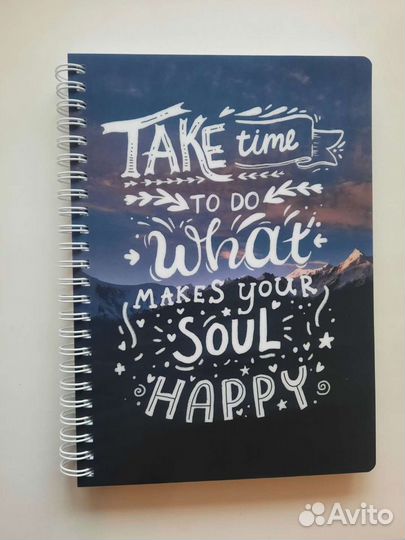 TAKE time
TO DO
what
MAKES YOUR
SOUL
HAPPY
Avito